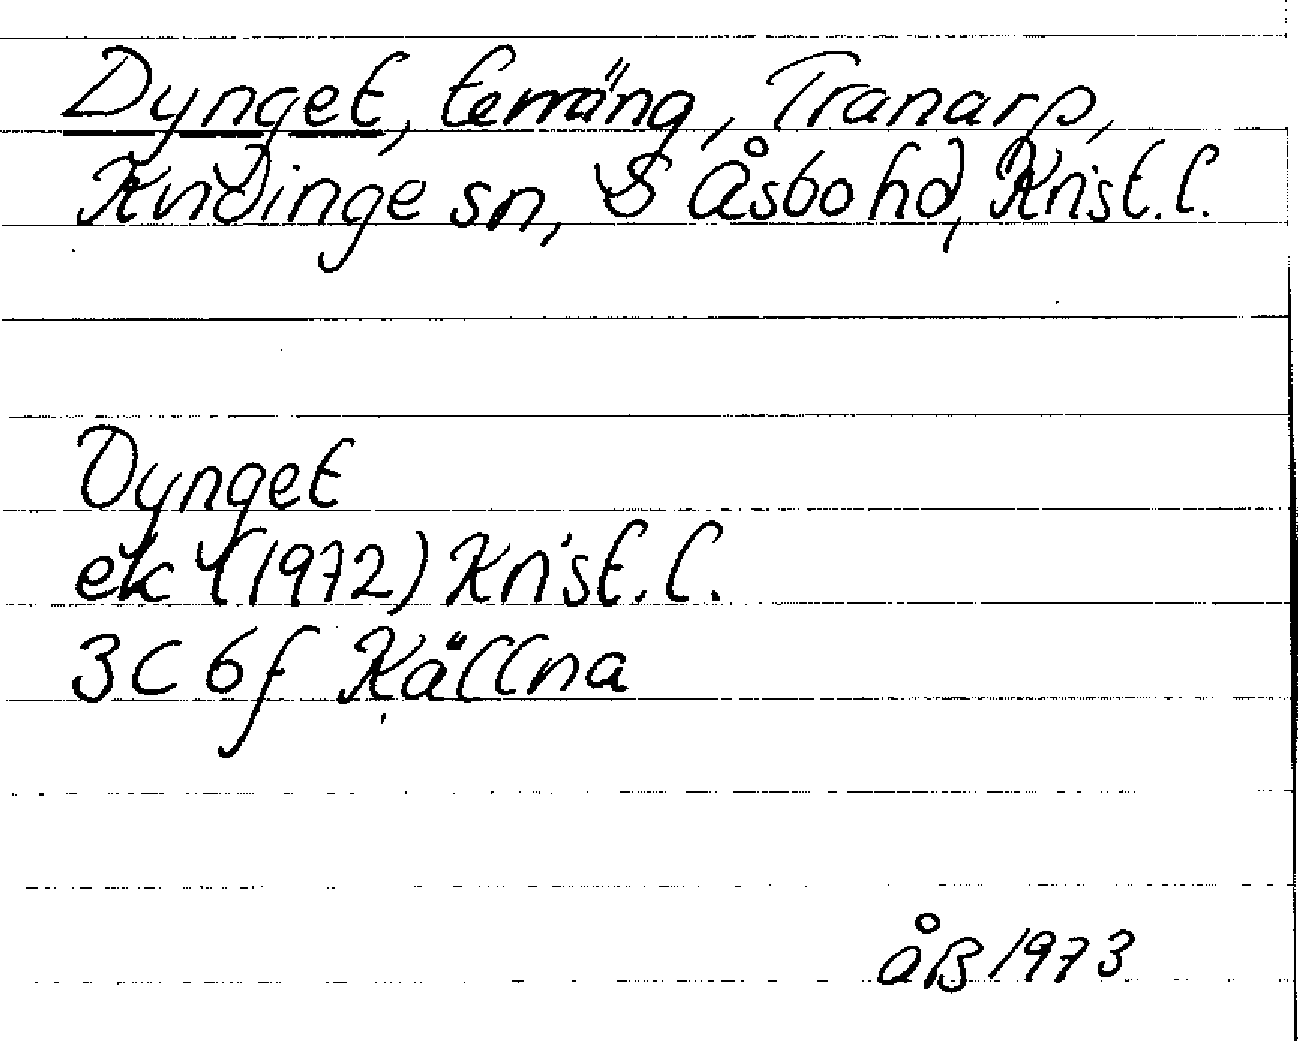 Dynget, terräng, Tranarp,
Kvidinge sn, S Åsbo hd, Krist. l.
Dynget
ek (1972) Krist. l.
3C 6f Källna
åB 1973